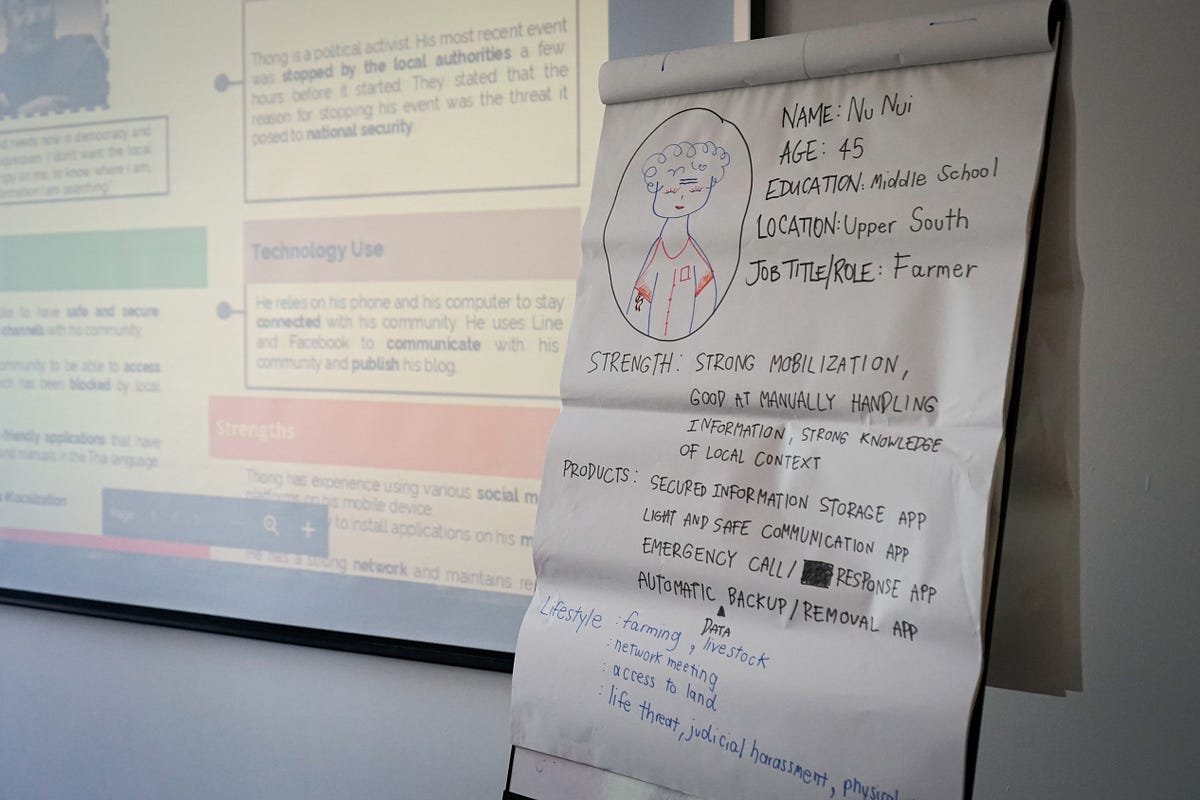 Thong is a political activist. His most recent event
was stopped by the local authorities a few
hours before it started. They stated that the
reason for stopping his event was the threat it
posed to national security.
needs now is democracy and
expression. I don't want the local
spy on me, to know where I am,
I am searching"
Technology Use
He relies on his phone and his computer to stay
connected with his community. He uses Line
and Facebook to communicate with his
community and publish his blog.
like to have safe and secure
channels with his community.
community to be able to access
which has been blocked by local
-friendly applications that have
and manuals in the Thai language.
#localization
Strengths
Thong has experience using various social m
platforms on his mobile device.
to install applications on his m
He has a strong network and maintains re
Page
NAME: Nu Nui
AGE: 45
EDUCATION: Middle School
LOCATION: Upper South
JOB TITLE/ROLE: Farmer
STRENGTH: STRONG MOBILIZATION,
GOOD AT MANUALLY HANDLING
INFORMATION, STRONG KNOWLEDGE
OF LOCAL CONTEXT
PRODUCTS: SECURED INFORMATION STORAGE APP
LIGHT AND SAFE COMMUNICATION APP
EMERGENCY CALL/ RESPONSE APP
AUTOMATIC BACKUP/REMOVAL APP
DATA
Lifestyle : farming, livestock
: network meeting
: access to land
: life threat, judicial harassment, physical